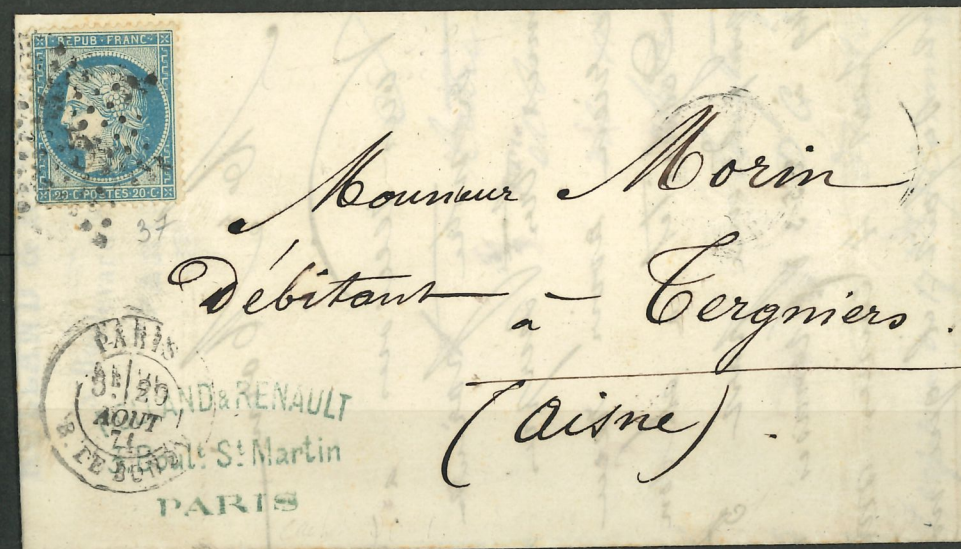 REPUB·FRANC
20·C·POSTES·20·C
37
Monsieur Morin
Débitant à Tergniers.
(Aisne)
PARIS
AOUT
71
AND & RENAULT
Boult St Martin
PARIS